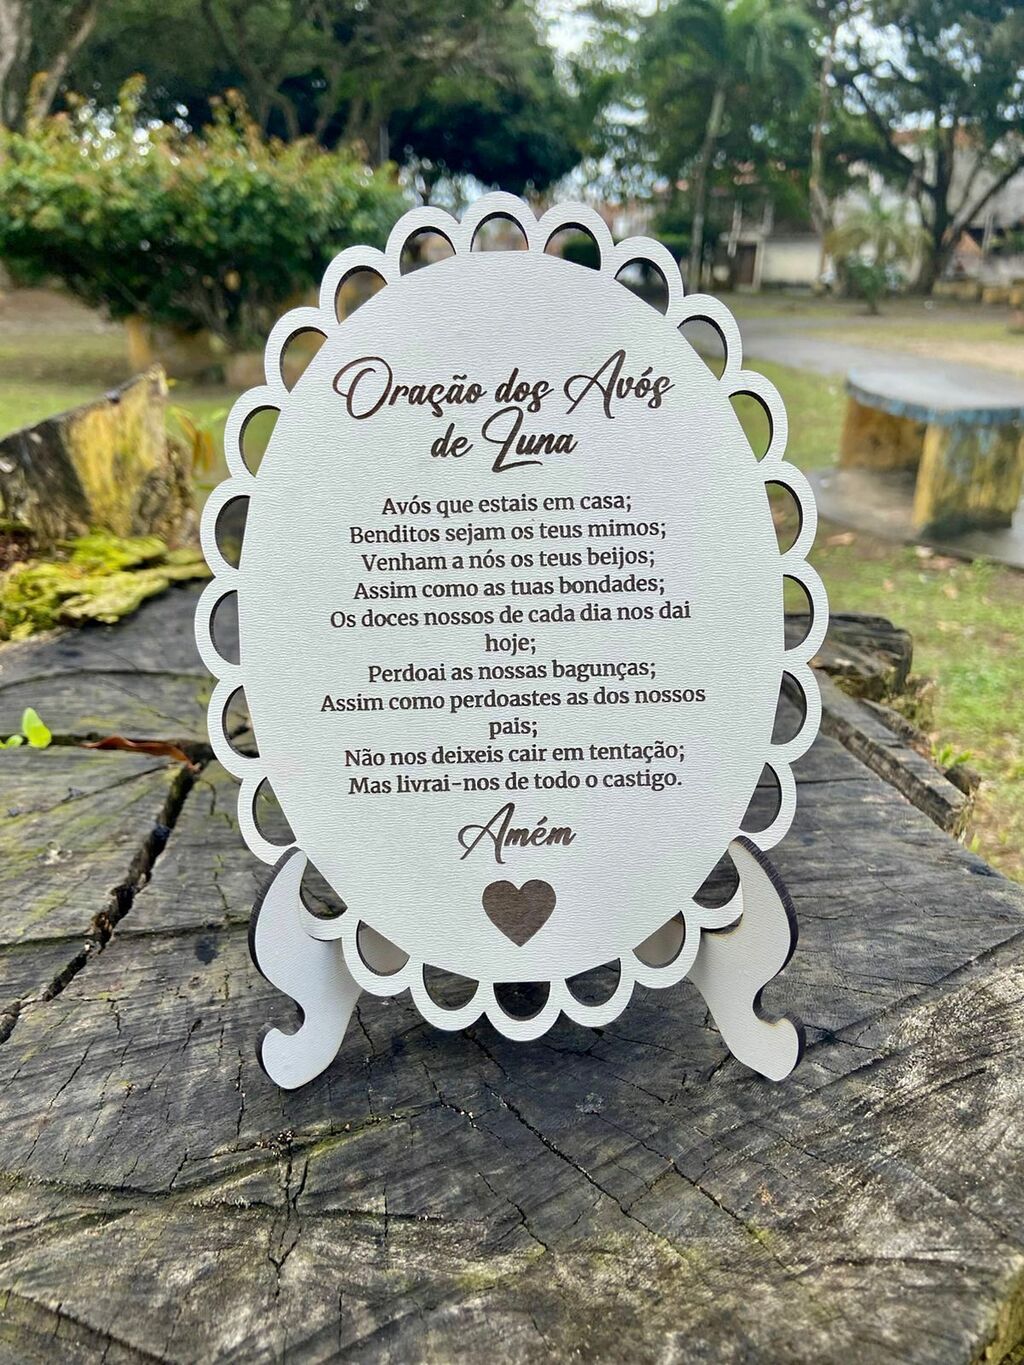 Oração dos Avós
de Luna
Avós que estais em casa;
Benditos sejam os teus mimos;
Venham a nós os teus beijos;
Assim como as tuas bondades;
Os doces nossos de cada dia nos dai
hoje;
Perdoai as nossas bagunças;
Assim como perdoastes as dos nossos
pais;
Não nos deixeis cair em tentação;
Mas livrai-nos de todo o castigo.
Amém